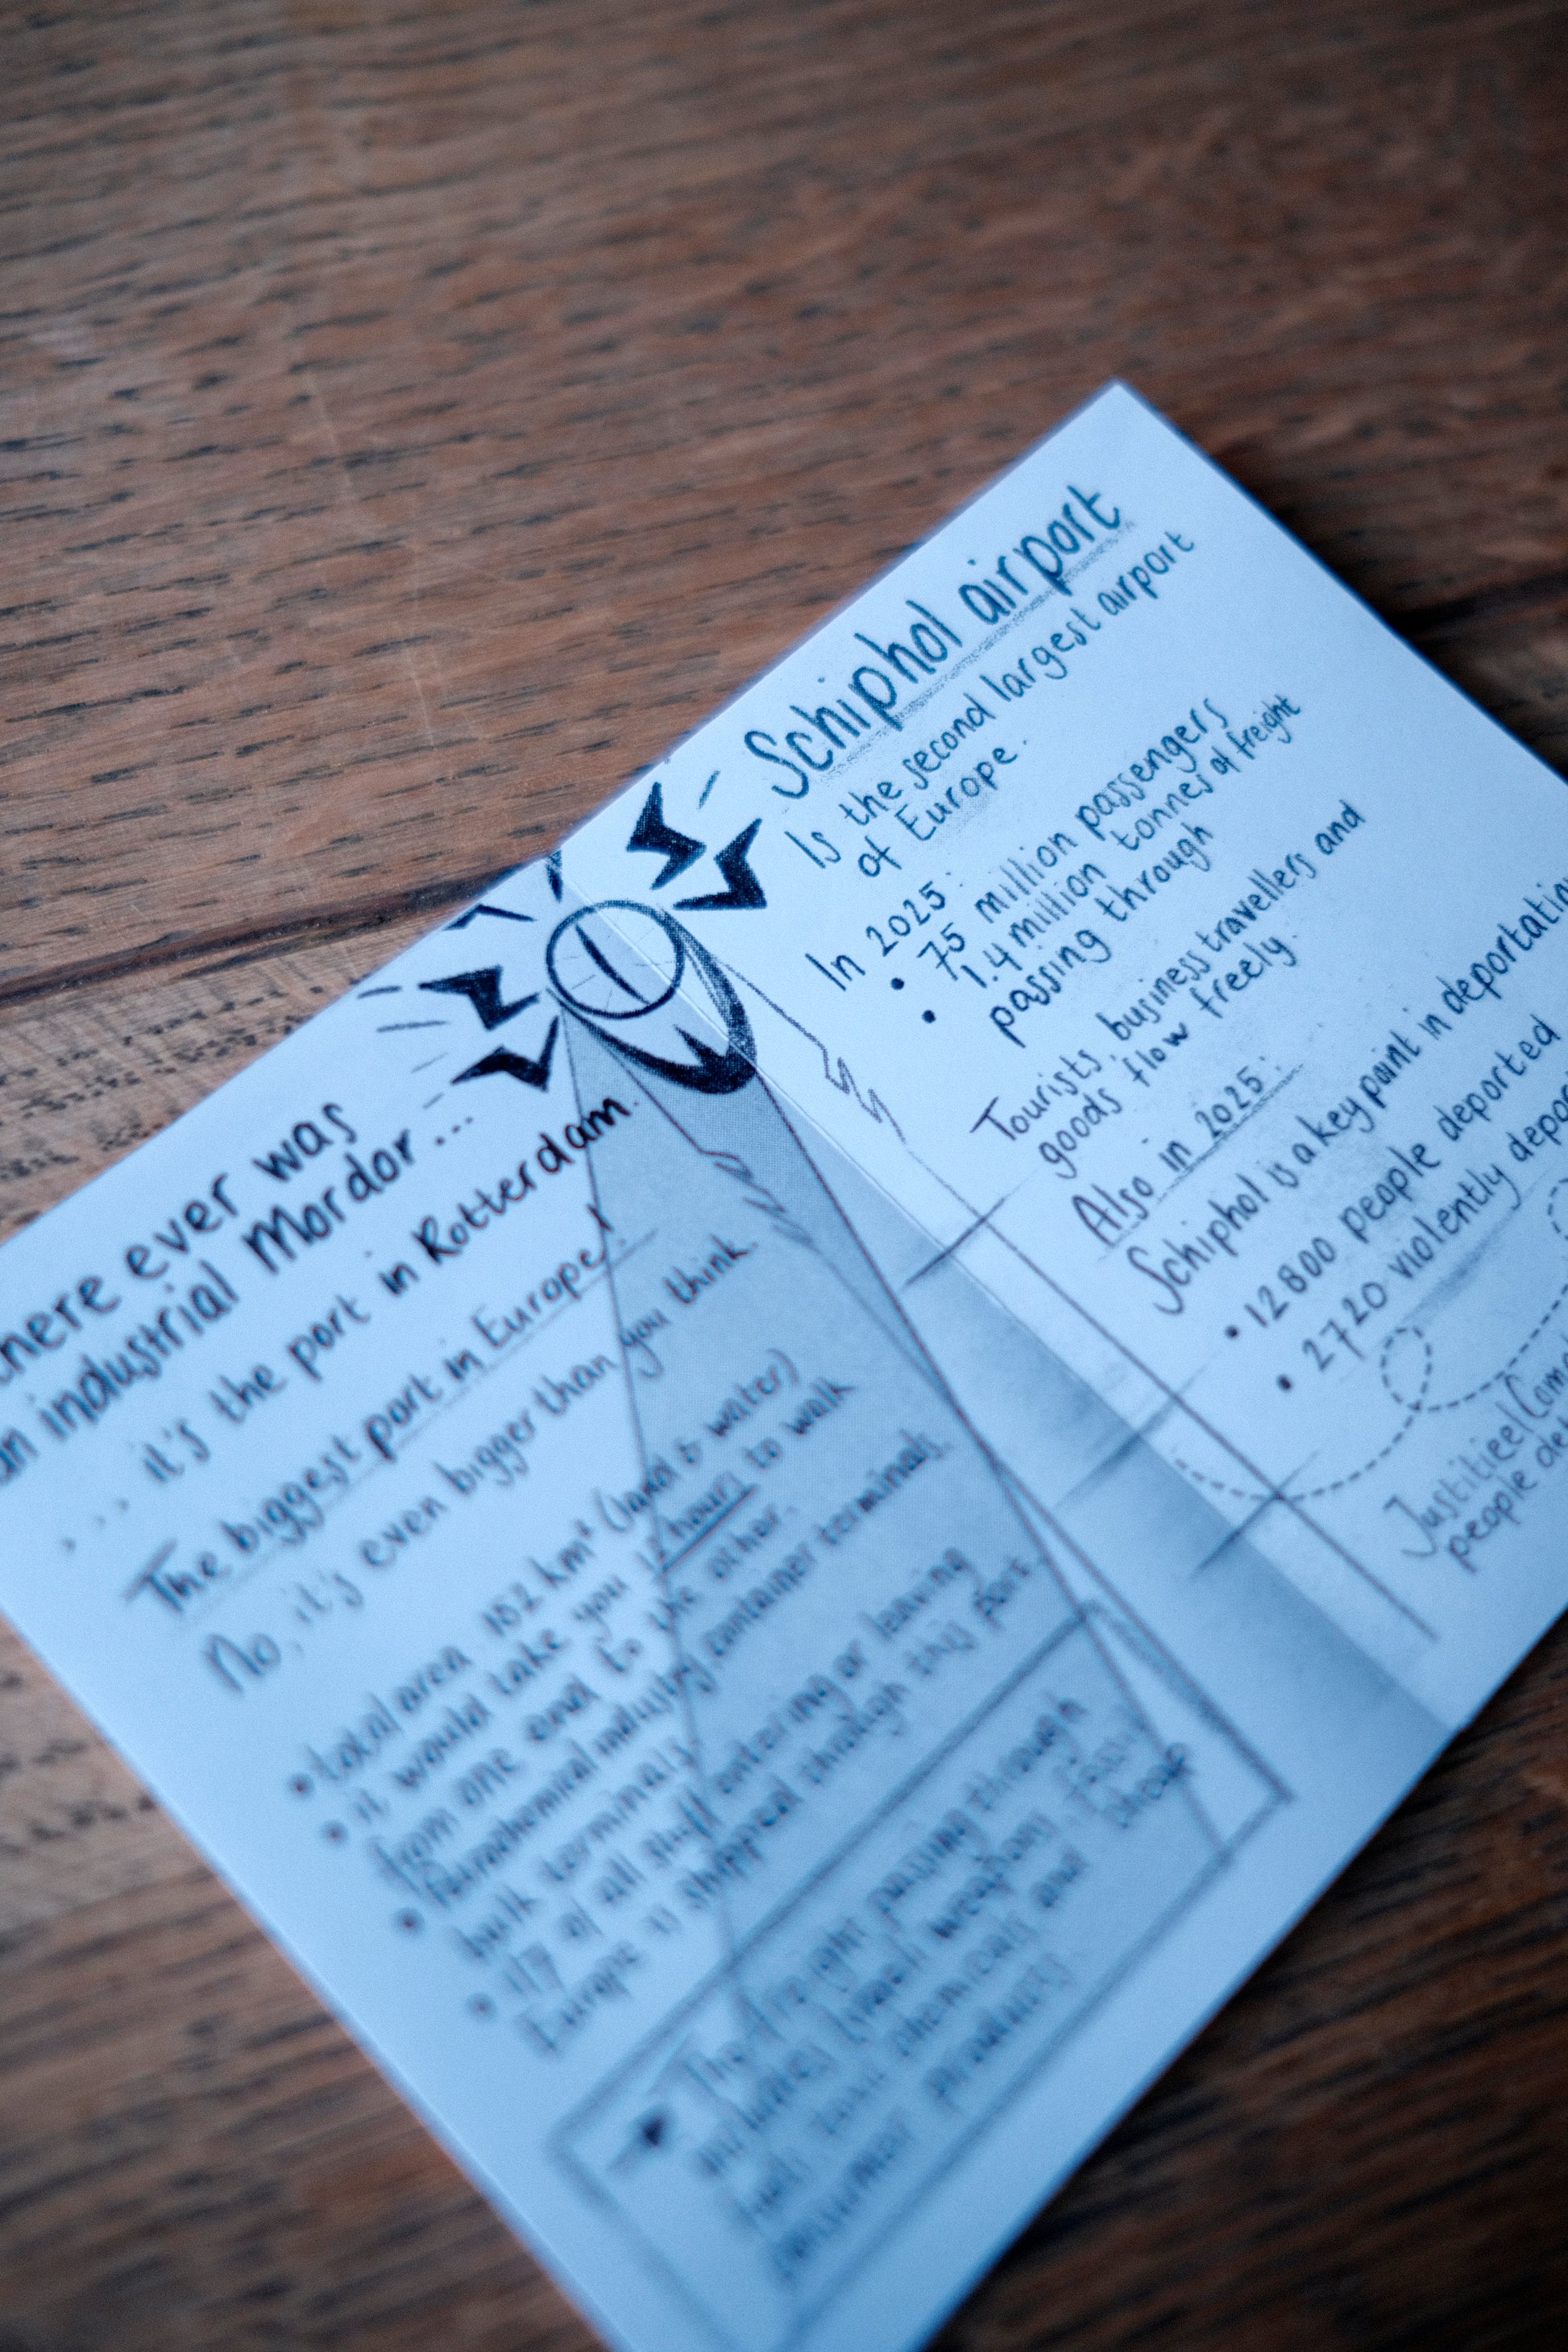 there ever was
an industrial Mordor...
... it's the port in Rotterdam.
The biggest port in Europe!
No, it's even bigger than you think.
total area 152 km² (land & water)
it would take you 12 hours to walk
from one end to the other.
Petrochemical industry, container terminals,
bulk terminals
of all stuff entering or leaving
Europe is shipped through this port.
passing through
weapon
chemicals and
products
Schiphol airport
Is the second largest airport
of Europe.
In 2025:
• 75 million passengers
• 1.4 million tonnes of freight
passing through
Tourists, business travellers and
goods flow freely.
Also in 2025:
Schiphol is a key point in
• 12800 people deported
• 2720 violently
people